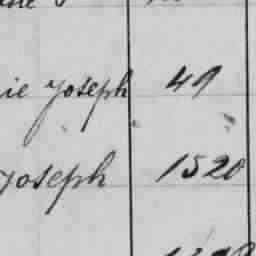 ie Joseph 49
Joseph 1520